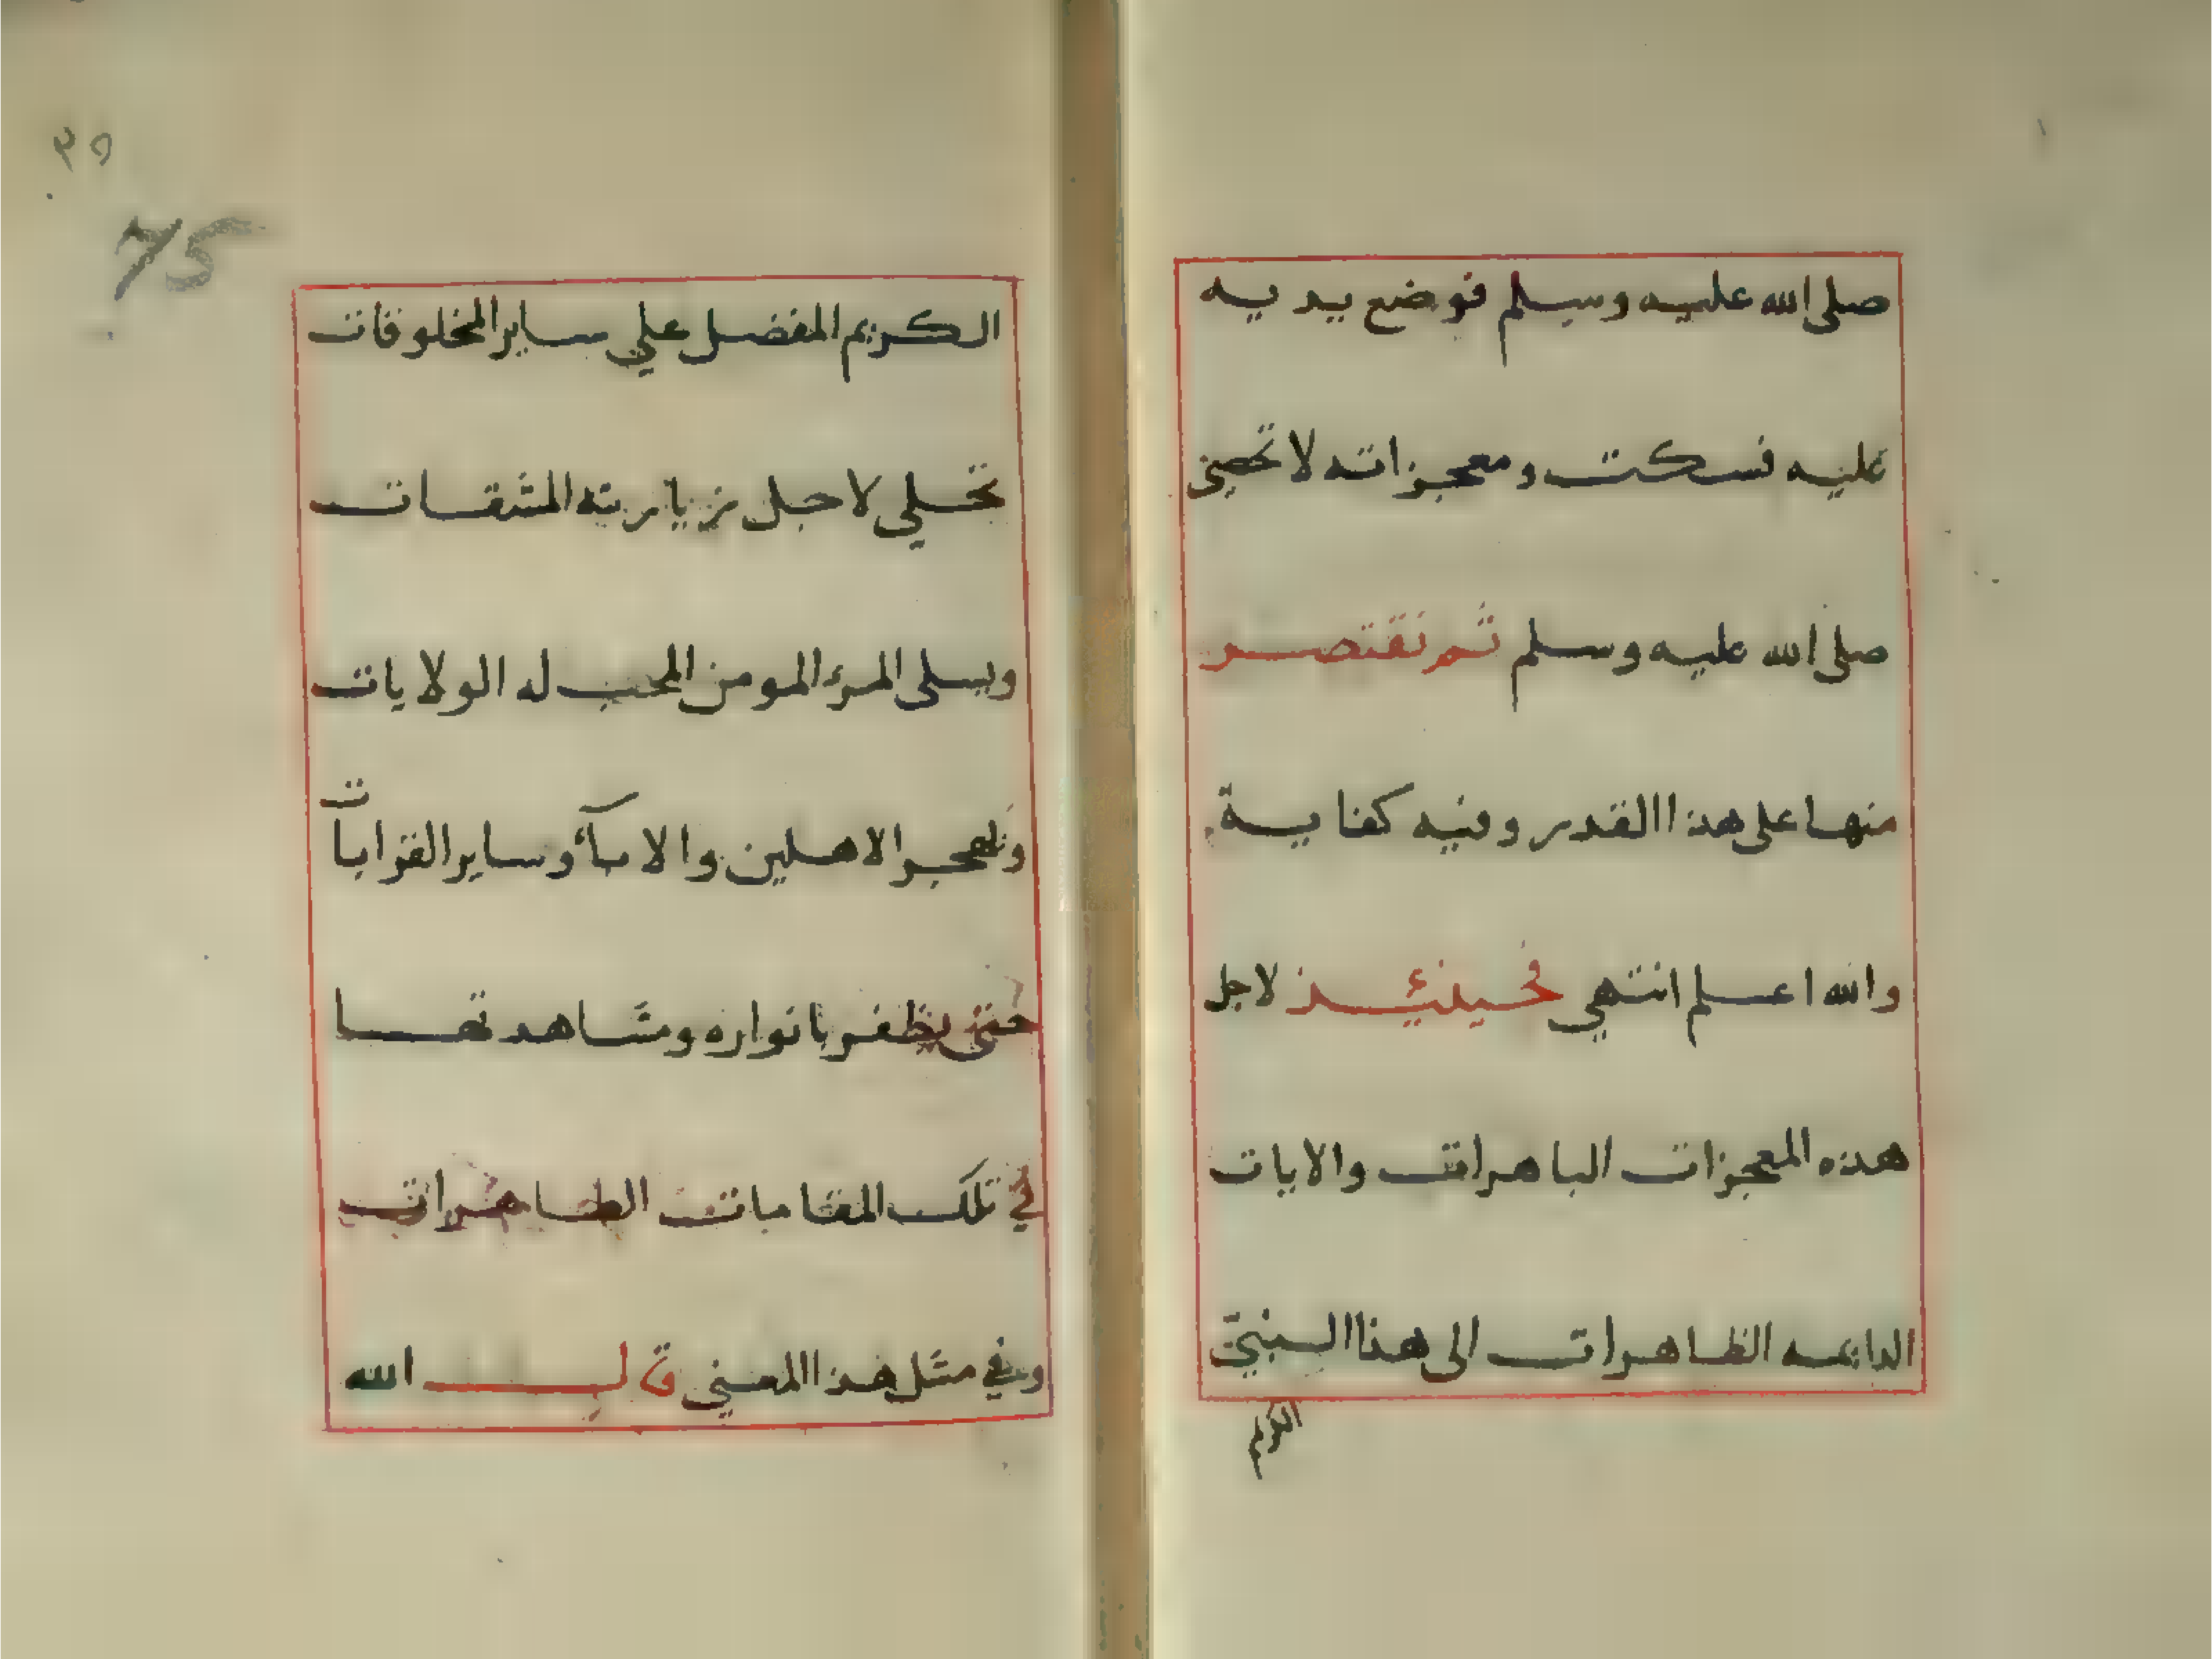 صلى الله عليه وسلم فوضع يديه
عليه فسكت ومعجزاته لا تحصى
صلى الله عليه وسلم ثم نقتصر
منها على هذا القدر وفيه كفاية
والله اعلم انتهي فحينئذ لاجل
هذه المعجزات الباهرات والايات
الظاهرات الى هذا النبي
الكريم
٣٥
75
الكريم المفضل علي ساير المخلوقات
تحلي لاجل زيارته المشقات
ويسلى المرء المومن المحب له الولايات
ونهجر الاهلين والاباء وساير القرابات
حتى يظفر بانواره ومشاهدتها
في تلك المقامات الطاهرات
وفي مثل هذا المعني قال الله